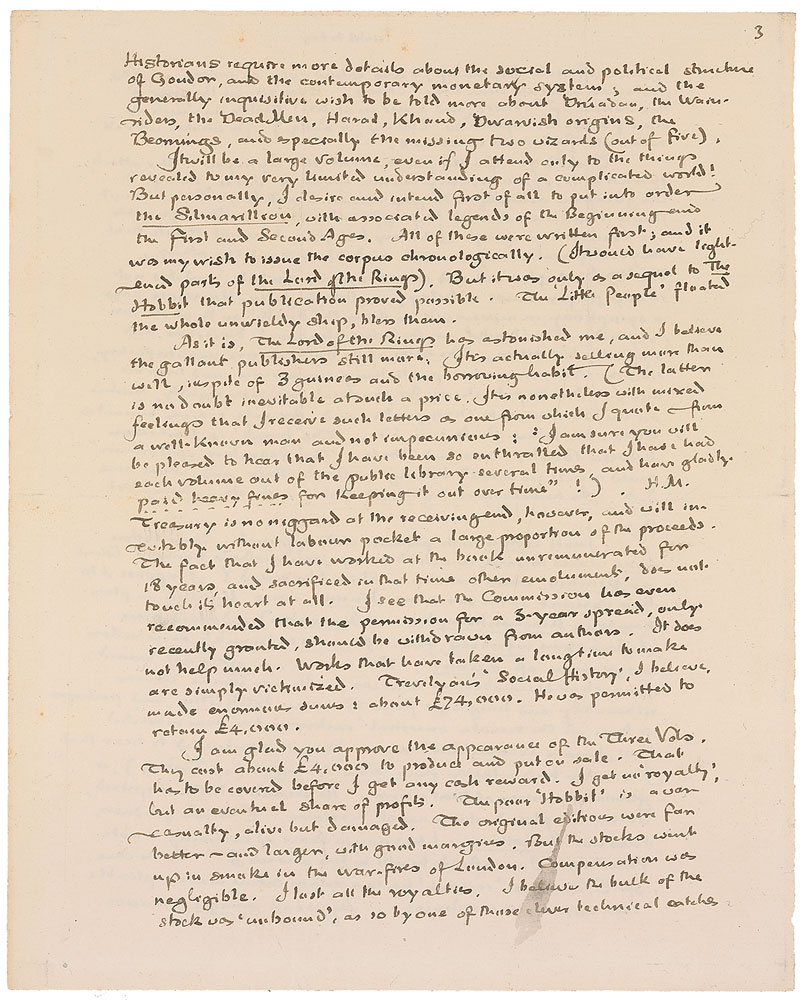 3
Historians require more details about the social and political structure
of Gondor, and the contemporary monetary system; and the
generally inquisitive wish to be told more about Drúadan, the Wain-
riders, the Dead Men, Harad, Khand, Dwarvish origins, the
Beornings, and especially the missing two wizards (out of five).
It will be a large volume, even if I attend only to the things
revealed to my very limited understanding of a complicated world!
But personally, I desire and intend first of all to put into order
the Silmarillion, with associated legends of the Beginning and
the First and Second Ages. All of these were written first; and it
was my wish to issue the corpus chronologically. (It would have light-
ened parts of the Lord of the Rings). But it was only as a sequel to The
Hobbit that publication proved possible. The 'Little People' floated
the whole unwieldy ship, bless them.
As it is, The Lord of the Rings has astonished me, and I believe
the gallant publishers still more. It is actually selling more than
well, inspite of 3 guineas and the borrowing habit. (The latter
is no doubt inevitable at such a price. It is nonetheless with mixed
feelings that I receive such letters as one from which I quote – from
a well-known man and not impecunious: "I am sure you will
be pleased to hear that I have been so enthralled that I have had
each volume out of the public library several times, and have gladly
paid heavy fines for keeping it out over time" !). H.M.
Treasury is no niggard at the receiving end, however, and will in-
evitably without labour pocket a large proportion of the proceeds.
The fact that I have worked at the book unremunerated for
18 years, and sacrificed in that time other emoluments, does not
touch its heart at all. I see that the Commission has even
recommended that the permission for a 3-year spread, only
recently granted, should be withdrawn from authors. It does
not help much. Works that have taken a long time to make
are simply victimized. Trevelyan's 'Social History', I believe,
made enormous sums: about £74,000. He was permitted to
retain £4,000.
I am glad you approve the appearance of the Three Vols.
They cost about £4,000 to produce and put on sale. That
has to be covered before I get any cash reward. I get no 'royalty',
but an eventual share of profits. The poor 'Hobbit' is a war-
casualty, alive but damaged. The original editions were far
better – and larger, with good margins. But the stocks went
up in smoke in the war-fires of London. Compensation was
negligible. I lost all the royalties. I believe the bulk of the
stock was 'unbound', as so by one of those clever technical catches